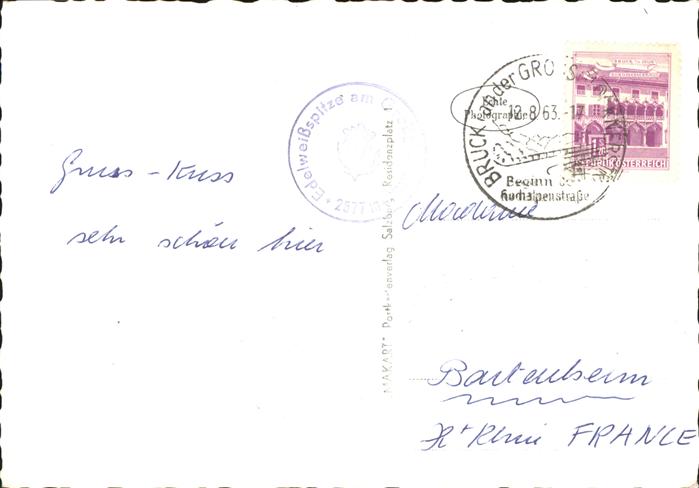 Gruss - Kuss
sehr schön hier
Edelweißspitze am
2577 m
MAKART Postkartenverlag Salzburg, Residenzplatz
Echte
Photographie
12.8.63.-17
BRUCK an der GROSSGLOCKNERSTR.
Beginn der
Hochalpenstraße
REPUBLIK ÖSTERREICH
Madame
Bartenheim
Ht Rhin FRANCE